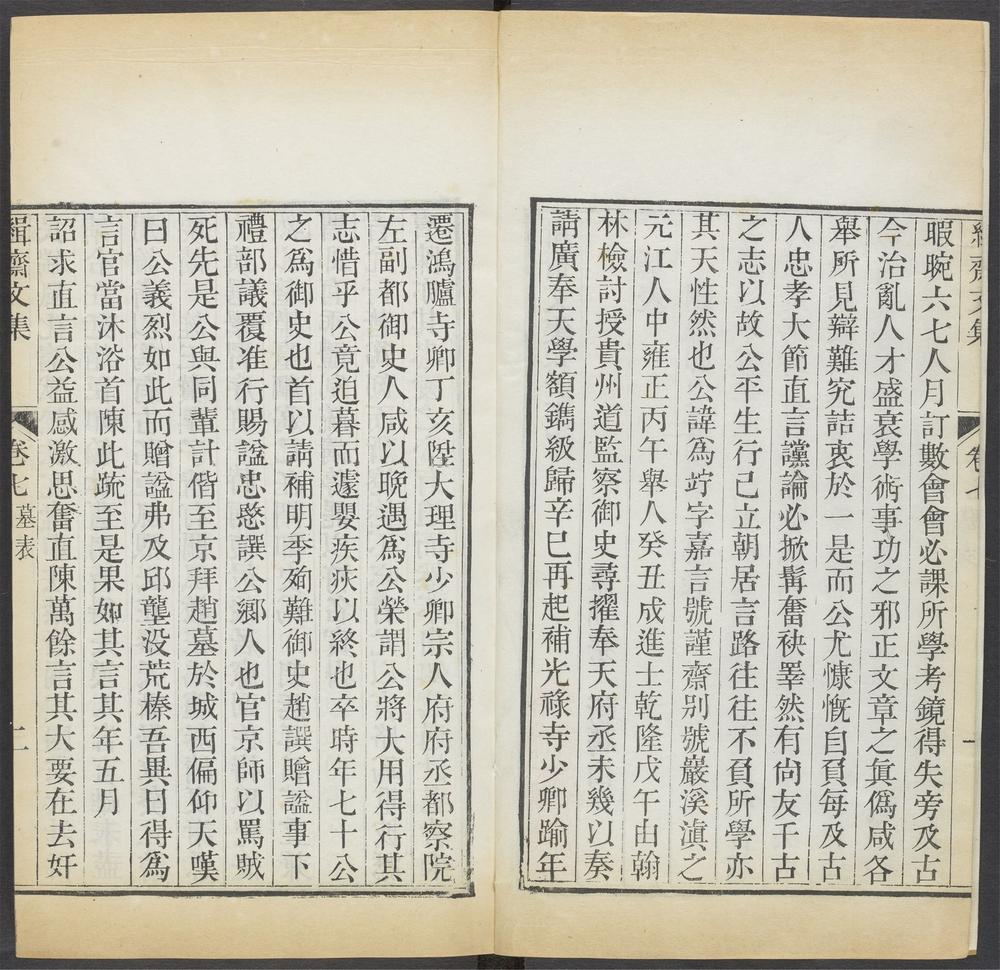 暇晼六七人月訂數會會必課所學考鏡得失旁及古
今治亂人才盛衰學術事功之邪正文章之眞僞咸各
舉所見辯難究詰衷於一是而公尤慷慨自負每及古
人忠孝大節直言讜論必掀髯奮袂睪然有尙友千古
之志以故公平生行己立朝居言路往往不負所學亦
其天性然也公諱爲竚字嘉言號謹齋別號巖溪滇之
元江人中雍正丙午舉人癸丑成進士乾隆戊午由翰
林檢討授貴州道監察御史尋擢奉天府丞未幾以奏
請廣奉天學額鐫級歸辛巳再起補光祿寺少卿踰年
卷七
一
遷鴻臚寺卿丁亥陞大理寺少卿宗人府府丞都察院
左副都御史人咸以晚遇爲公榮謂公將大用得行其
志惜乎公竟迫暮而遽嬰疾疢以終也卒時年七十公
之爲御史也首以請補明季殉難御史趙譔贈謚事下
禮部議覆准行賜謚忠愍譔公鄉人也官京師以罵賊
死先是公與同輩計偕至京拜趙墓於城西偏仰天嘆
曰公義烈如此而贈謚弗及邱壟没荒榛吾異日得爲
言官當沐浴首陳此疏至是果如其言其年五月
詔求直言公益感激思奮直陳萬餘言其大要在去奸
緝齋文集
卷七墓表
二